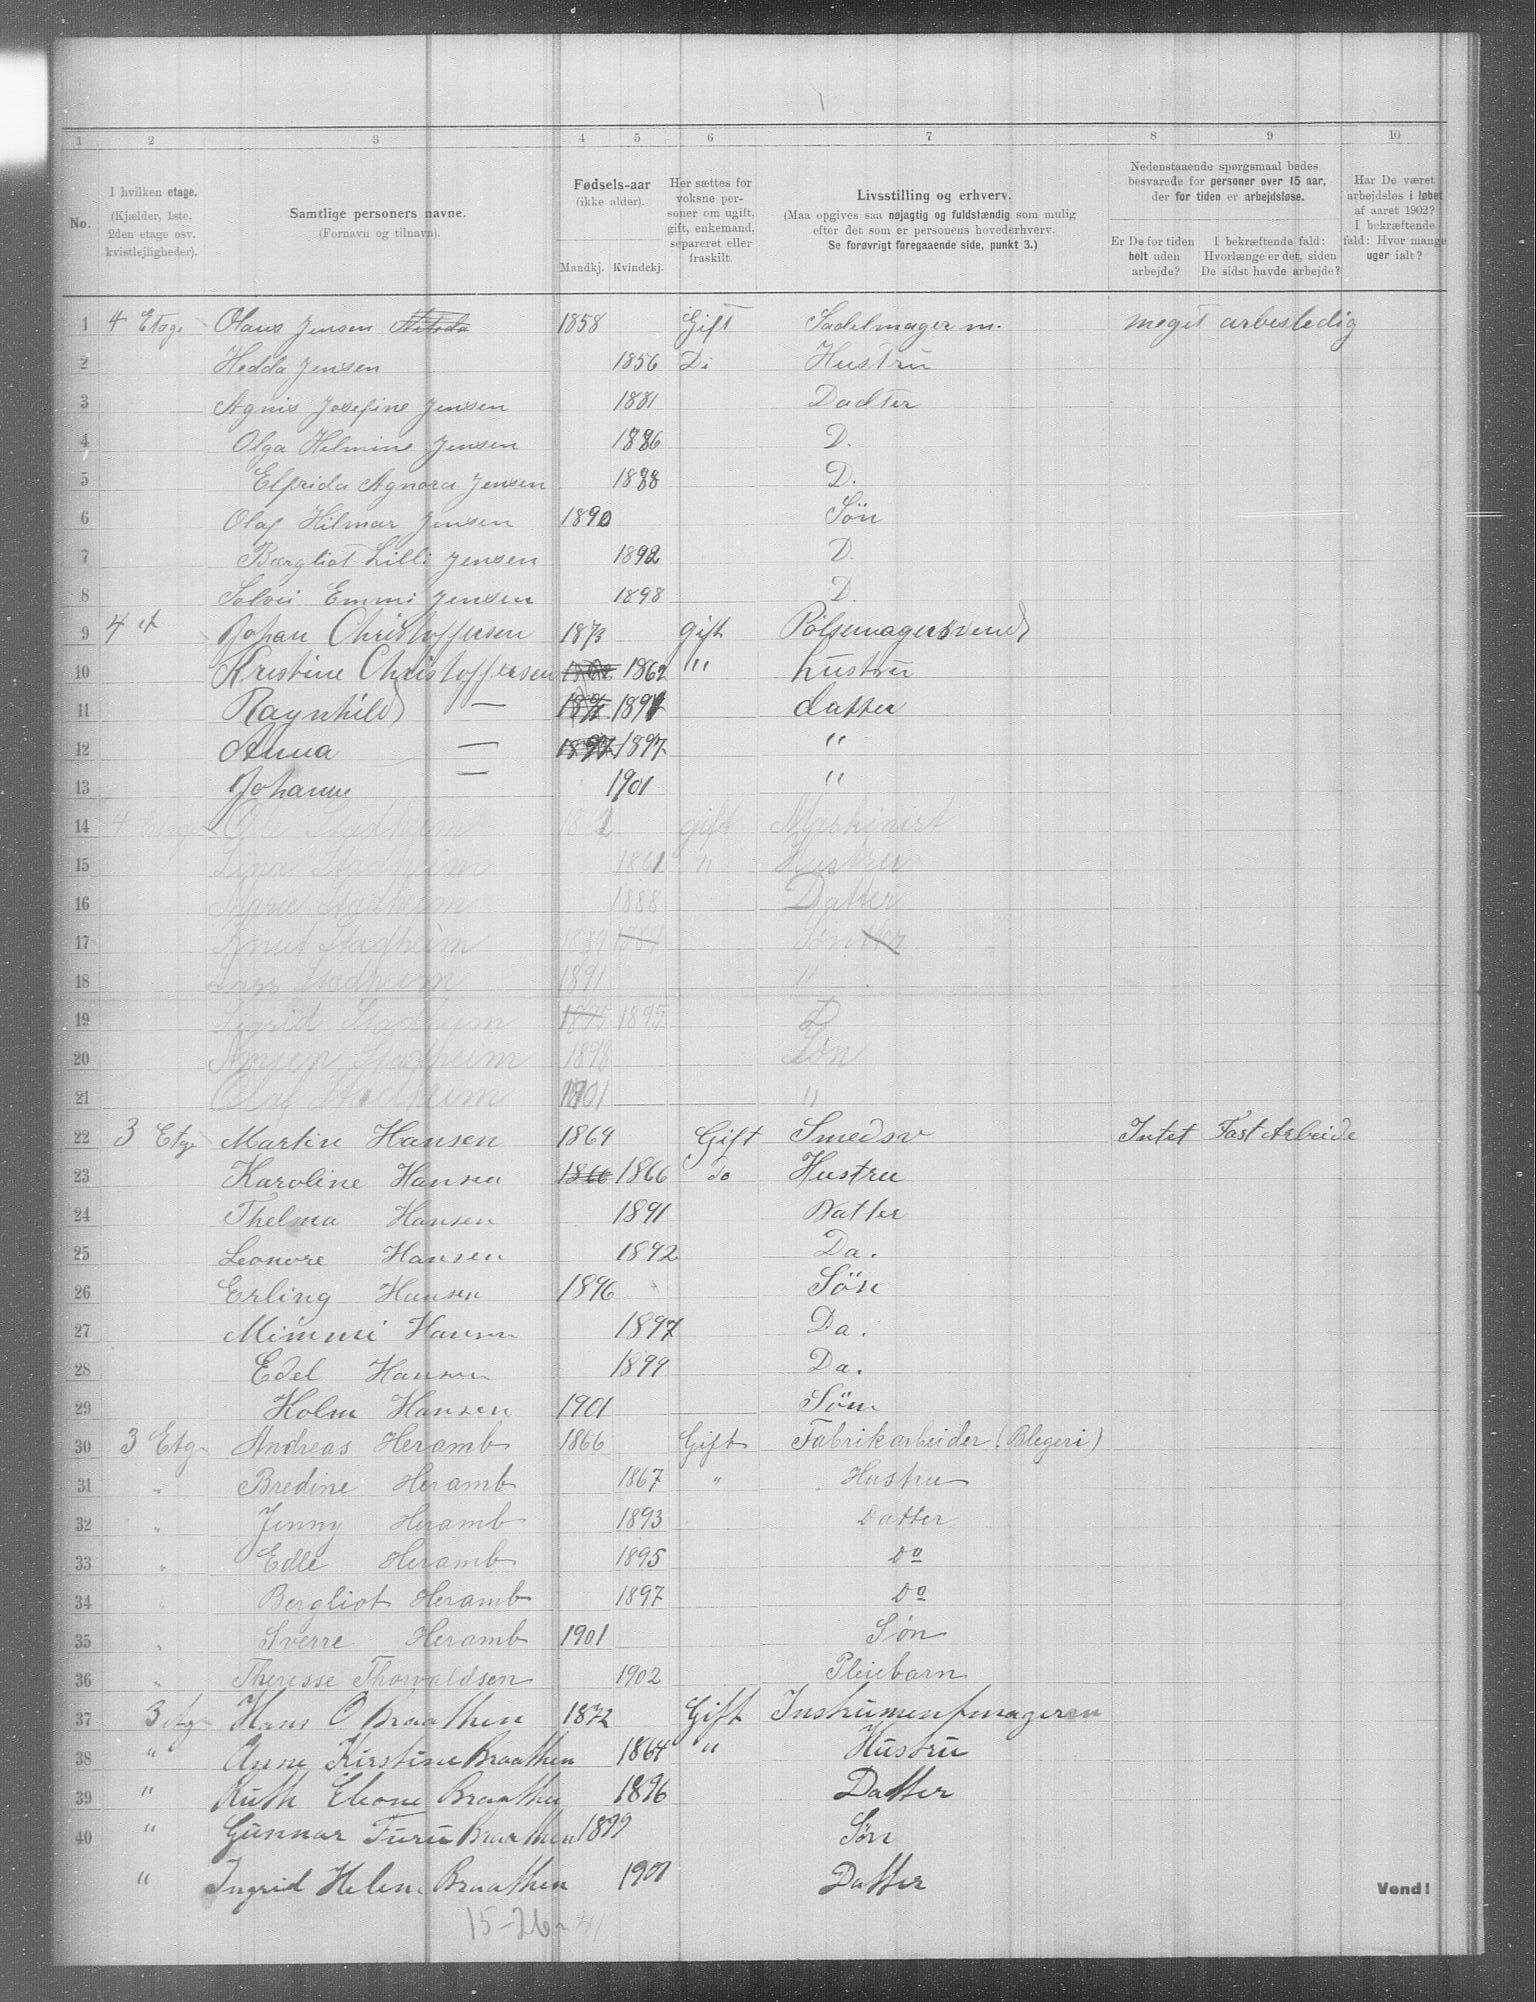 1 2 3 4 5 6 7 8 9 10
No.
I hvilken etage.
(Kjælder, 1ste, 2den etage osv. kvistlejligheder).
Samtlige personers navne.
(Fornavn og tilnavn).
Fødsels-aar
(ikke alder).
Mandkj. Kvindekj.
Her sættes for voksne personer om ugift, gift, enkemand, separeret eller fraskilt.
Livsstilling og erhverv.
(Maa opgives saa nøjagtig og fuldstændig som mulig efter det som er personens hovederhverv. Se forøvrigt foregaaende side, punkt 3.)
Nedenstaaende spørgsmaal bedes besvarede for personer over 15 aar, der for tiden er arbejdsløse.
Er De for tiden helt uden arbejde?
I bekræftende fald: Hvorlænge er det, siden De sidst havde arbejde?
Har De været arbejdsløs i løbet af aaret 1902? I bekræftende fald: Hvor mange uger ialt?
1 4 Etage Olaus Jensen 1858 Gift Sadelmager m. meget arbesledig
2 Hedda Jensen 1856 D: Hustru
3 Agnis Josefine Jensen 1881 Dadter
4 Olga Helmine Jensen 1886 D.
5 Elfrida Agnora Jensen 1888 D.
6 Olaf Hilmar Jensen 1890 Søn
7 Bærgliot Lilli Jensen 1892 D.
8 Solvei Emmi Jensen 1898 D.
9 4 et Johan Christoffersen 1873 gift Pølsemagersvend
10 Kristine Christoffersen 1862 " hustru
11 Ragnhild — 1891 datter
12 Anna — 1897 1897 "
13 Johanne — 1901 "
14 4 Etage Ole Stadheim gift Maskinist
15 Lina Stadheim 1861 " Hustru
16 Marie Stadheim 1888 Datter
17 Knut Stadheim 1889 1889 Søn
18 Lars Stadheim 1891 "
19 Sigrid Stadheim 1895 1895 D
20 Stadheim 1898 Søn
21 Olaf Stadheim 1901 "
22 3 Etg Martin Hansen 1864 Gift Smedsv Intet Fast Arbeide
23 Karoline Hansen 1866 1866 do Hustru
24 Thelma Hansen 1891 Datter
25 Leonore Hansen 1892 Da.
26 Erling Hansen 1896 Søn
27 Mimmi Hansen 1897 Da.
28 Edel Hansen 1899 Da.
29 Holm Hansen 1901 Søn
30 3 Etg Andreas Heramb 1866 Gift Fabrikarbeider (Blegeri)
31 " Bredine Heramb 1867 " Hustru
32 " Jenny Heramb 1893 Datter
33 " Edle Heramb 1895 Do
34 " Bergliot Heramb 1897 Do
35 " Sverre Heramb 1901 Søn
36 " Theresse Thorvaldsen 1902 Pleiebarn
37 3 etg Hans O Braathen 1872 Gift Instrumentmagersvn
38 " Anne Kirstine Braathen 1864 " Hustru
39 " Ruth Eleone Braathen 1896 Datter
40 " Gunnar Furu Braathen 1899 Søn
" Ingrid Helene Braathen 1901 Datter
Vend!
15-26 = 41